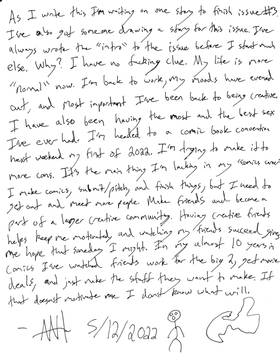 As I write this I'm waiting on one story to finish issue #3
I've also got someone drawing a story for this issue. I've
always wrote the "intro" to the issue before I start much
else. Why? I have no fucking clue. My life is more
"normal" now. I'm back to work, my moods have evened
out, and most important I've been back to being creative.
I have also been having the most and the best sex
I've ever had. I'm headed to a comic book convention
next weekend my first of 2022. I'm trying to make it to
more cons. It's the main thing I'm lacking in my "comics career"
I make comics, submit/pitch, and finish things, but I need to
get out and meet more people. Make friends and become a
part of a larger creative community. Having creative friends
helps keep me motivated, and watching my friends succeed, gives
me hope that someday I might. In my almost 10 years in
comics I've watched friends work for the big 2, get movie
deals, and just make the stuff they want to make. If
that doesn't motivate me I don't know what will.
5/12/2022